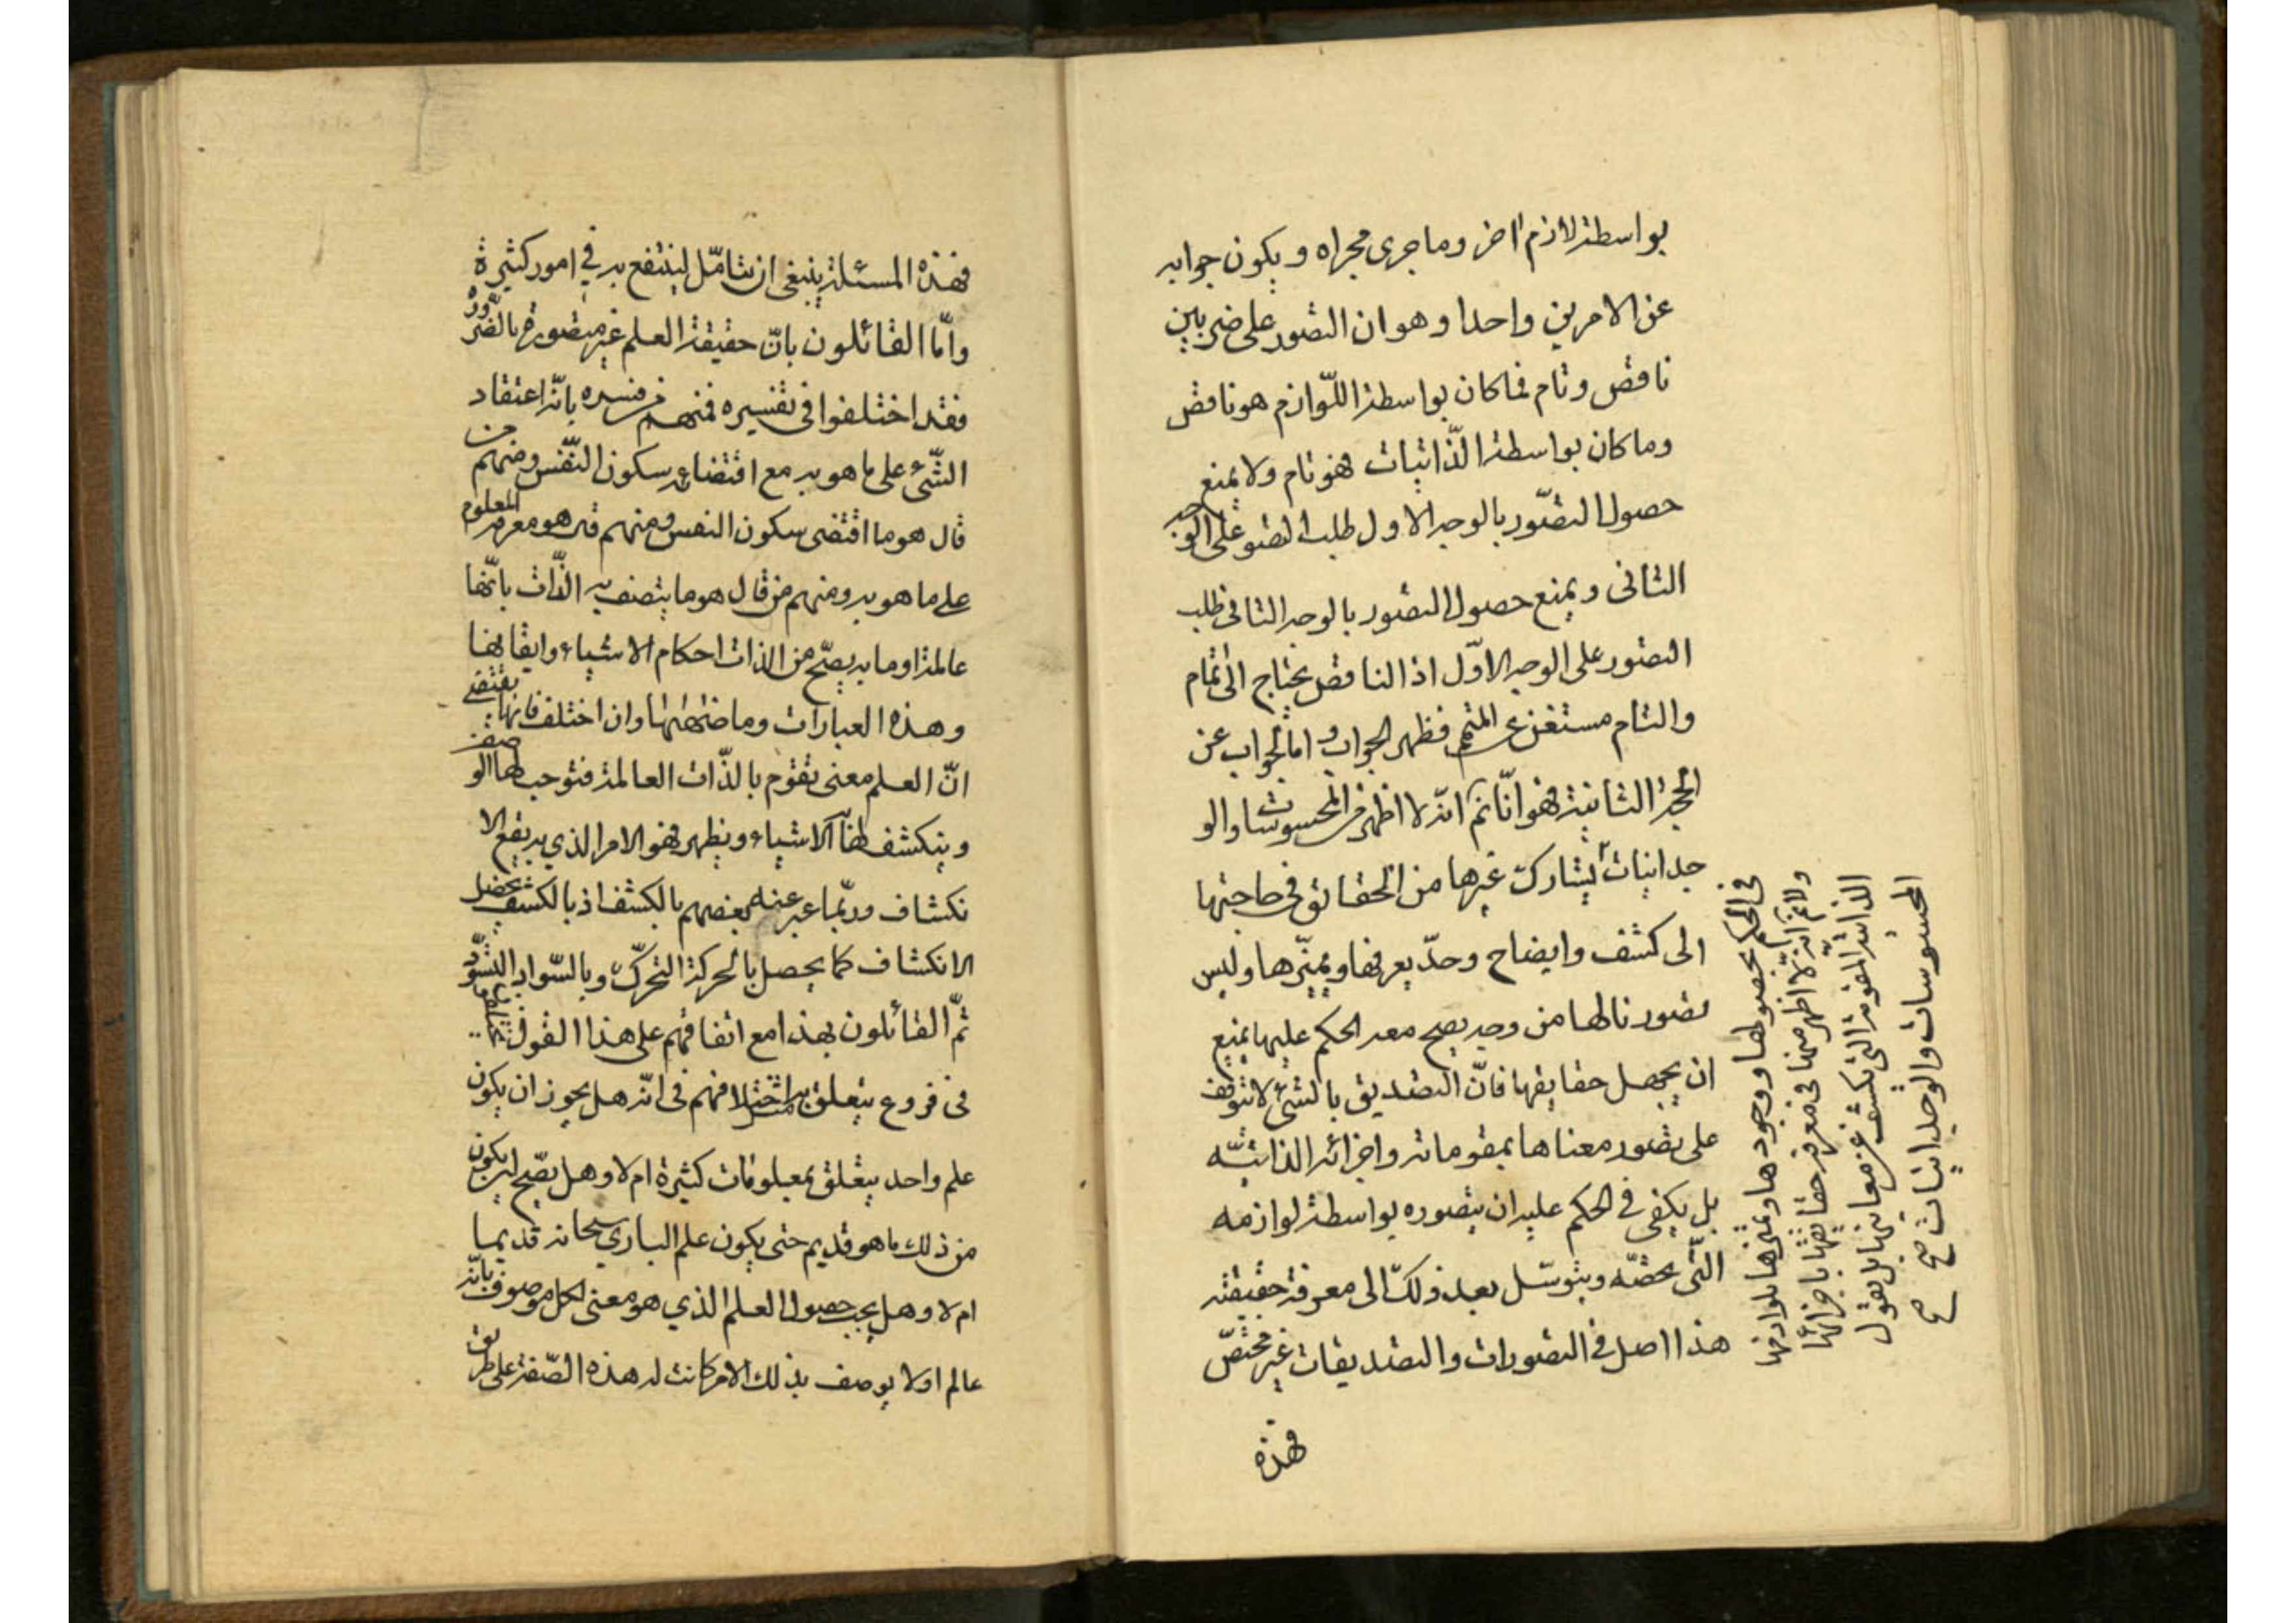 بواسطة لازم اخر وما جرى مجراه ويكون جوابه
عن الامرين واحدا وهو ان التصور على ضربين
ناقص وتام فما كان بواسطة اللّوازم هو ناقص
وما كان بواسطة الذّاتيات فهو تام ولا يمنع
حصول التصّور بالوجه الاول طلب التصور على الوجه
الثانى ويمنع حصول التصور بالوجه الثانى طلب
التصور على الوجه الاوّل اذ الناقص يحتاج الى تمام
والتام مستغن عن المتمم فظهر الجواب و اما الجواب عن
الحجة الثانية فهو انّا نم انّه لا اظهر من المحسوسات والو
جدانيات يشارك غيرها من الحقائق فى حاجتها
الى كشف وايضاح وحدّ يعرفها ويميّزها وليس
تصورنا لها من وجه يصح معه الحكم عليها يمنع
ان يجهل حقايقها فانّ التصديق بالشئ لا يتوقف
على تصور معناها بمقوماته واجزائه الذاتيّه
بل يكفى فى الحكم عليه ان يتصوره بواسطة لوازمه
التّى تخصّه ويتوسّل بعد ذلك الى معرفة حقيقته
هذا اصل فى التصورات والتصديقات غير مختصّ
فهذه
فى الحكم بحصولها ووجودها وتميزها بلوازمها
ولا نم انّه لا اظهر منها فى معرفة حقايقها باجزائها
الذاتية المقومة التى تكشف عن معانيها بل نقول
المحسوسات والوجدانيات صح صح
فهذه المسئلة ينبغى ان تتامّل لينتفع به فى امور كثيرة
وامّا القائلون بانّ حقيقة العلم غير متصورة بالضّرورة
فقد اختلفوا فى تفسيره فمنهم من فسره بانّه اعتقاد
الشّئ على ما هو به مع اقتضائه سكون النّفس ومنهم من
قال هو ما اقتضى سكون النفس ومنهم من قال هو معرفة المعلوم
على ما هو به ومنهم من قال هو ما يتصف به الذّات بانّها
عالمة او ما به يصحّ من الذات احكام الاشياء وايقانها
وهذه العبارات وما ضاهاها وان اختلف فانها يقتضى
انّ العلم معنى يقوم بالذّات العالمة فتوجب لها الوصف
وينكشف لها الاشياء ويظهر فهو الامر الذي به يقع الا
نكشاف وربّما عبر عنه بعضهم بالكشف اذ بالكشف يحصل
الانكشاف كما يحصل بالحركة التحركّ وبالسّواد التسّود
ثمّ القائلون بهذا مع اتفاقهم على هذا القول
فى فروع يتعلق به مثل اختلافهم فى انّه هل يجوز ان يكون
علم واحد يتعلق بمعلومات كثيرة ام لا وهل يصّح ان يكون
من ذلك ما هو قديم حتى يكون علم الباري سبحانه قديما
ام لا وهل يجب حصول العلم الذي هو معنى لكل موصوف بانّه
عالم او لا يوصف بذلك الا من كانت له هذه الصّفة على طريق